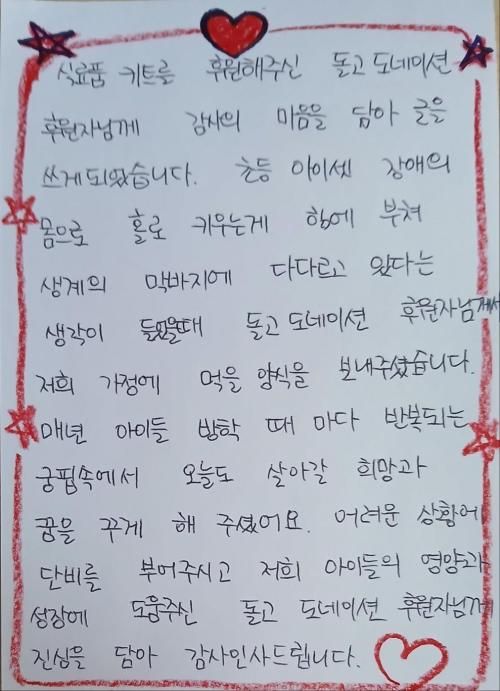 식료품 키트를 후원해주신 돌고 도네이션
후원자님께 감사의 마음을 담아 글을
쓰게되었습니다. 초등 아이셋 장애의
몸으로 홀로 키우는게 힘에 부쳐
생계의 막바지에 다다르고 있다는
생각이 들었을때 돌고 도네이션 후원자님께서
저희 가정에 먹을 양식을 보내주셨습니다.
매년 아이들 방학 때 마다 반복되는
궁핍속에서 오늘도 살아갈 희망과
꿈을 꾸게 해 주셨어요. 어려운 상황에
단비를 부어주시고 저희 아이들의 영양과
성장에 도움주신 돌고 도네이션 후원자님께
진심을 담아 감사인사드립니다.